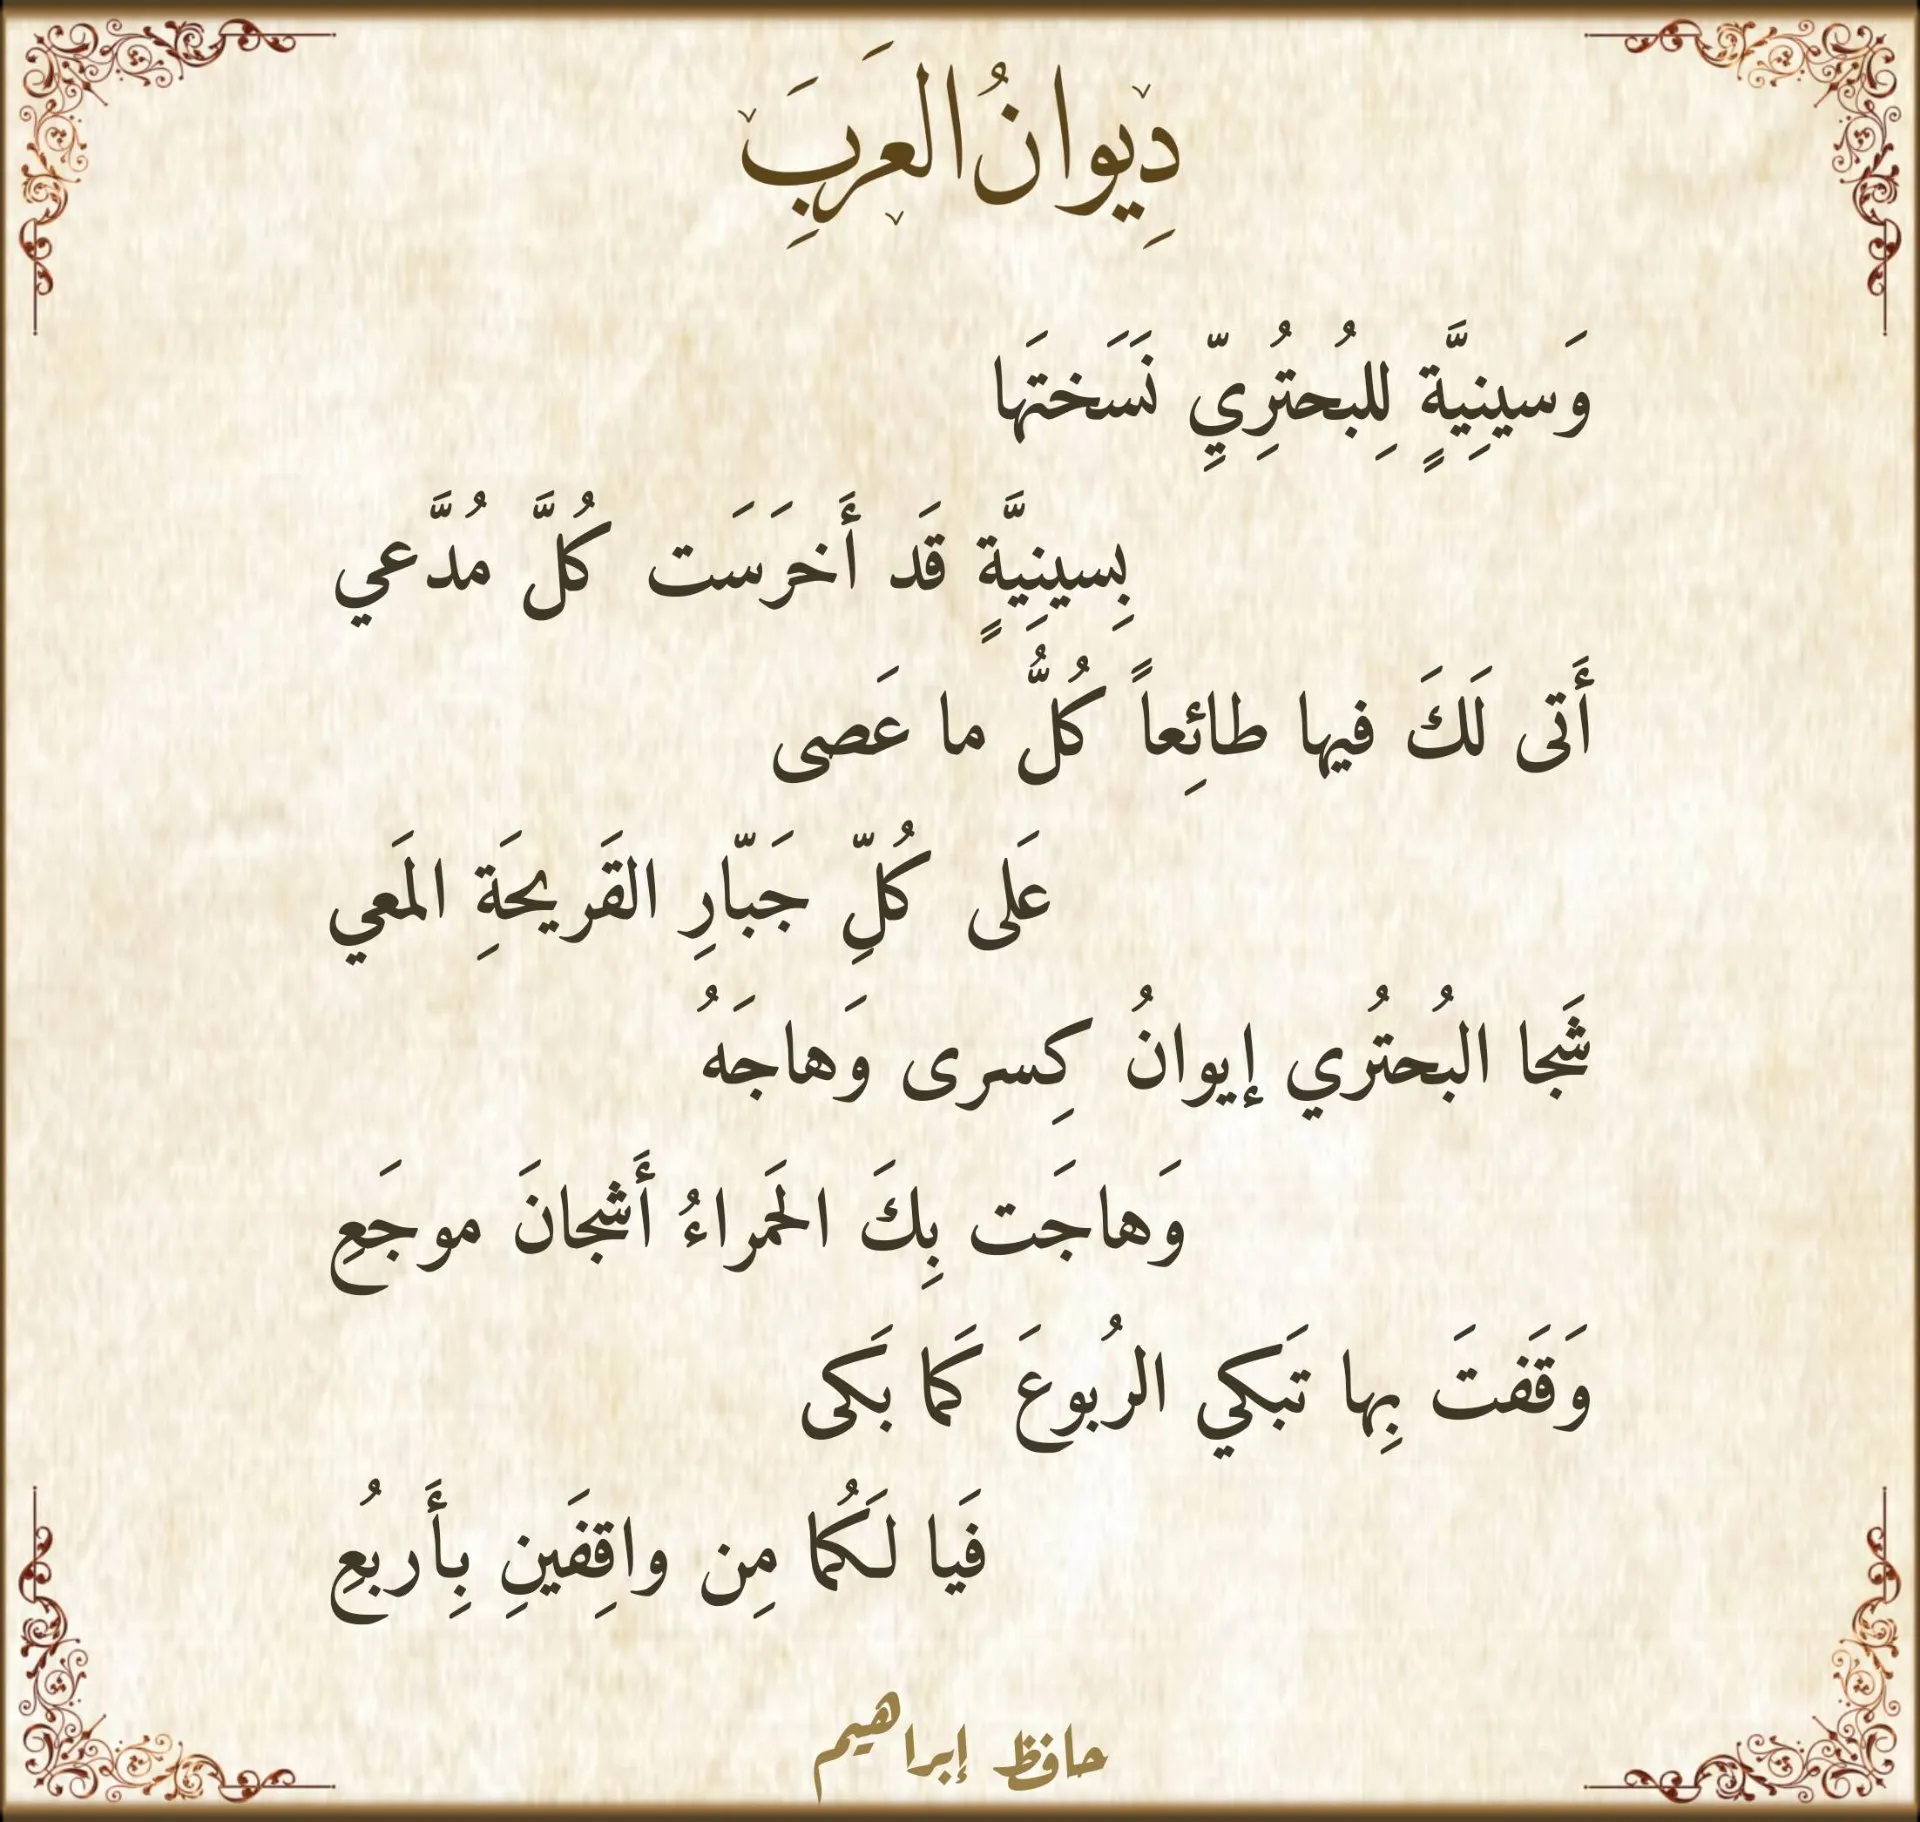 دِيوانُ العَرَبَِ
وَسينِيَّةٍ لِلبُحتُرِيِّ نَسَختَها
بِسينِيَّةٍ قَد أَخرَسَت كُلَّ مُدَّعي
أَتى لَكَ فيها طائِعاً كُلُّ ما عَصى
عَلى كُلِّ جَبّارِ القَريحَةِ المَعي
شَجا البُحتُري إيوانُ كِسرى وَهاجَهُ
وَهاجَت بِكَ الحَمراءُ أَشجانَ موجَعِ
وَقَفتَ بِها تَبكي الرُبوعَ كَما بَكى
فَيا لَكُما مِن واقِفَينِ بِأَربُعِ
حافظ إبراهيم